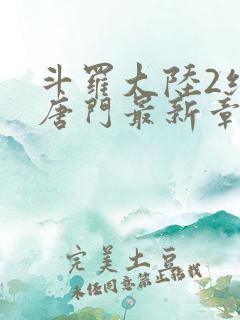 斗羅大陸2
唐門最新章
完美土豆
未经同意禁止转载